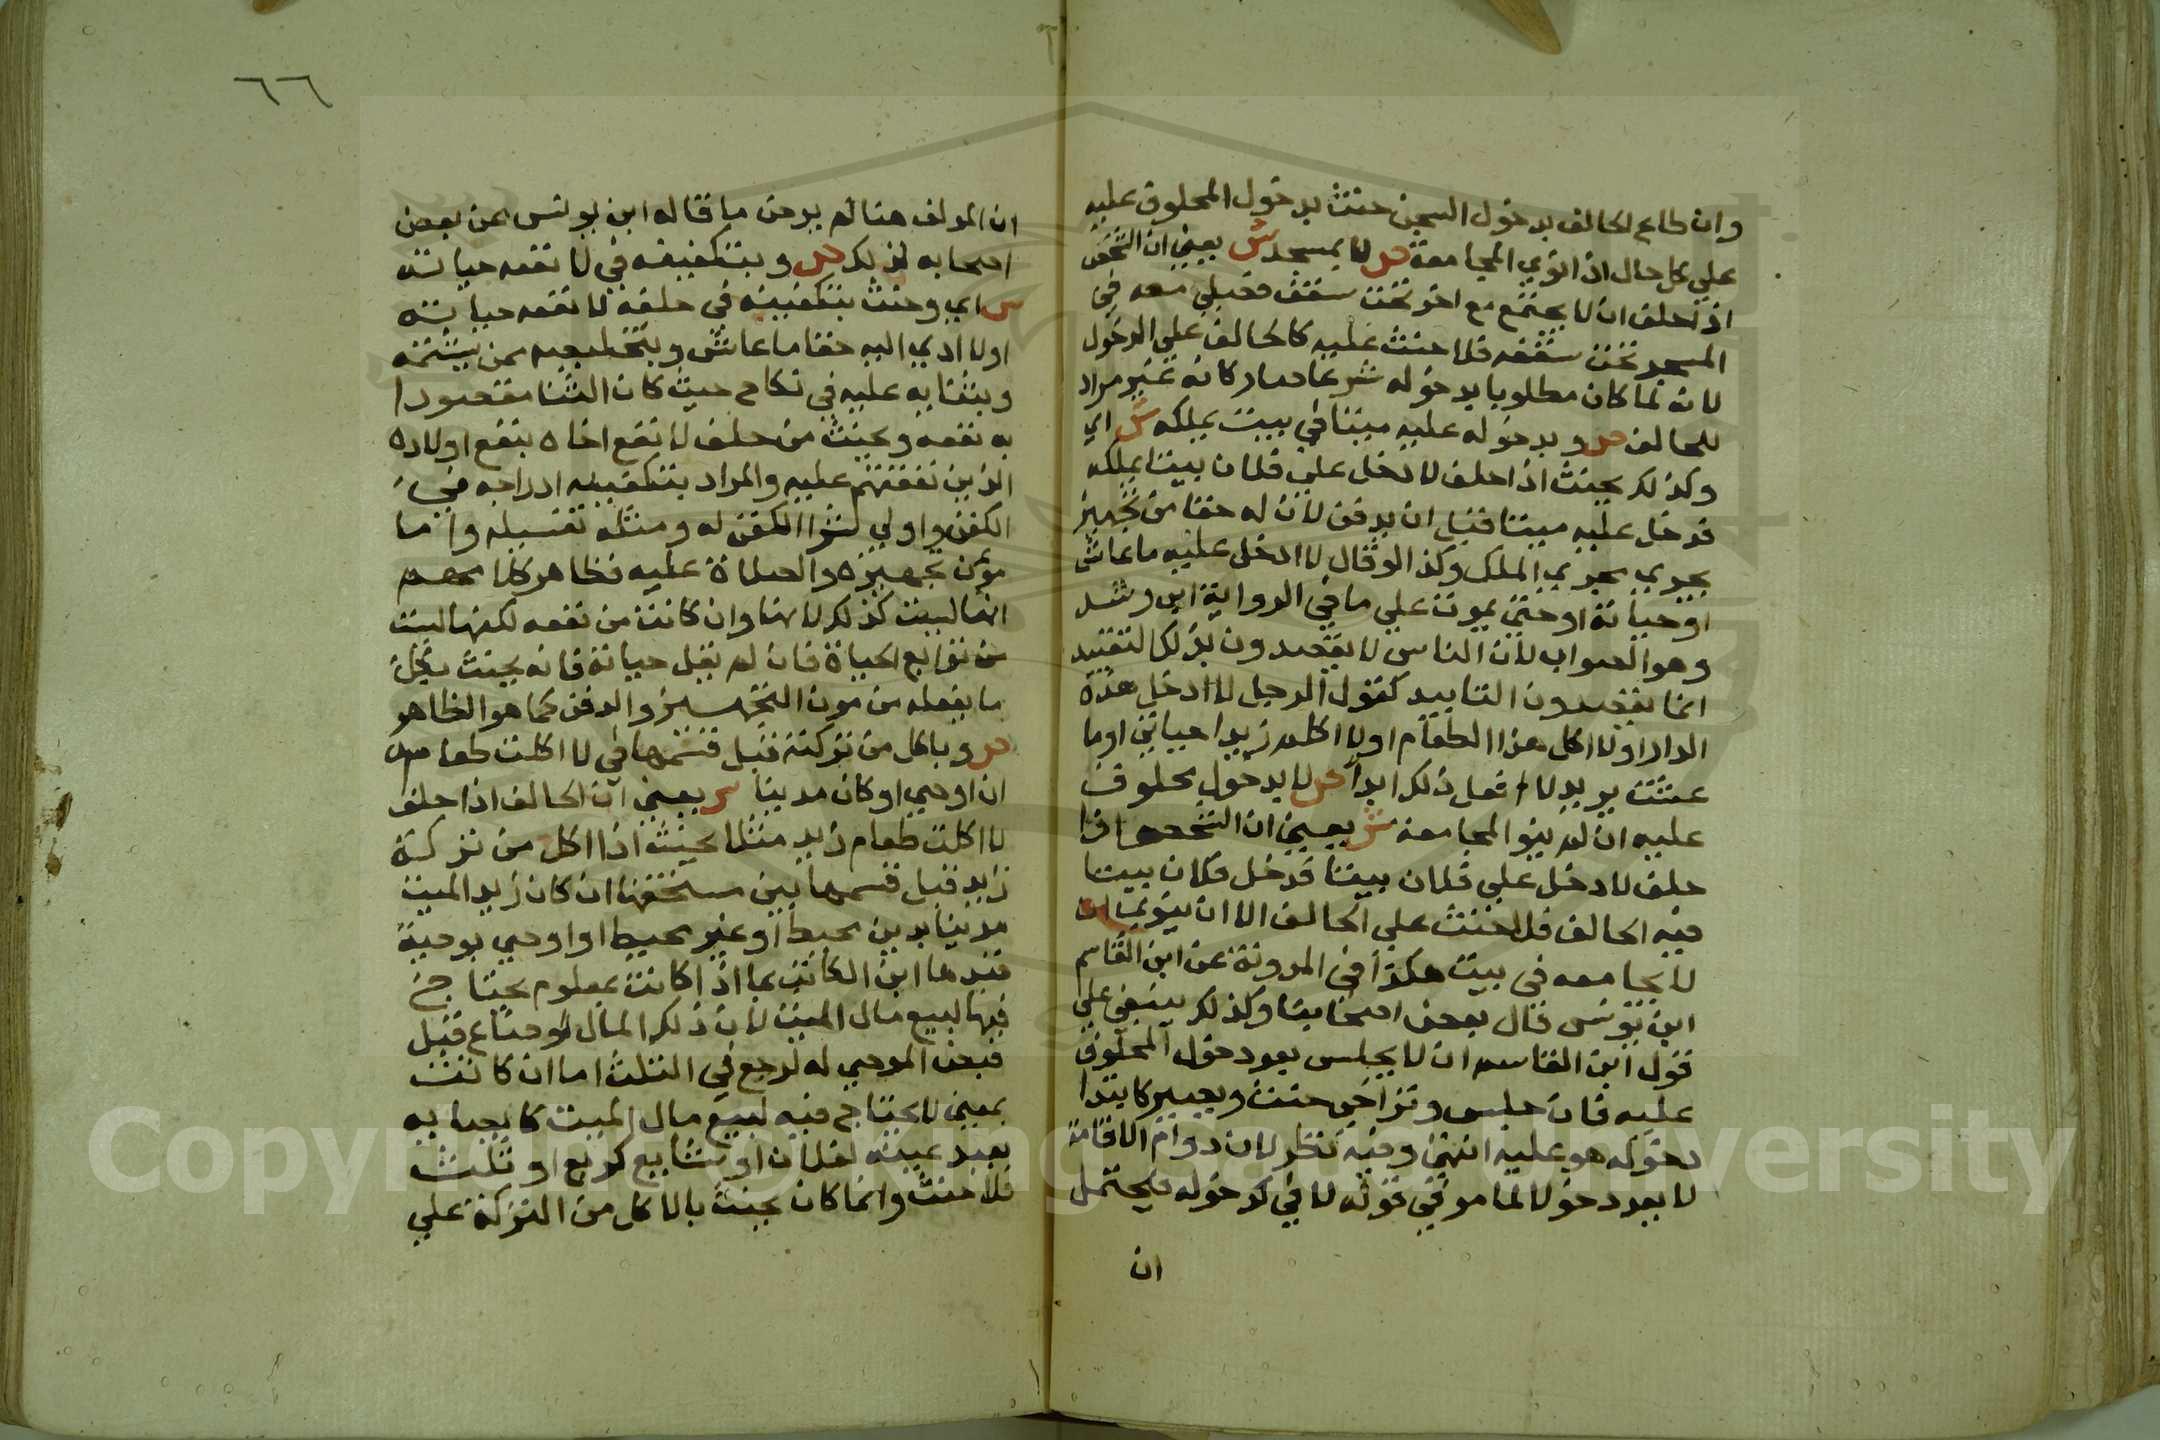 وان طاع الحالف بدخول السجن حنث بدخول المحلوف عليه
علي كل حال اذا نوي المجامعة ص لا بمسجد ش يعني ان الشخص
اذا حلف ان لا يجتمع مع اخر تحت سقف فصلي معه في
المسجد تحت سقفه فلا حنث عليه كالحالف علي الدخول
لانه لما كان مطلوبا بدخوله شرعا صار كانه غير مراد
للحالف ص وبدخوله عليه ميتا في بيت يملكه ش اي
وكذلك يحنث اذا حلف لا دخل علي فلان بيتا يملكه
فدخل عليه ميتا قبل ان يدفن لان له حقا من تجهيز
يجري مجري الملك وكذا لو قال لا ادخل عليه ما عاش
او حياته او حتي يموت علي ما في الرواية ابن رشد
وهو الصواب لان الناس لا يقصدون بذلك التقييد
انما يقصدون التابيد كقول الرجل لا ادخل هذه
الدار او لا اكل هذا الطعام او لا اكلم زيدا حياتي او ما
عشت يريد لا افعل ذلك ابدا ص لا بدخول محلوف
عليه ان لم ينو المجامعة ش يعني ان الشخص اذا
حلف لا دخل علي فلان بيتا فدخل فلان بيتا
فيه الحالف فلا حنث علي الحالف الا ان ينوي ان
لا يجامعه في بيت هكذا في المدونة عن ابن القاسم
ابن يونس قال بعض اصحابنا وكذلك ينبغي علي
قول ابن القاسم ان لا يجلس بعد دخول المحلوف
عليه فان جلس وتراخي حنث ويصير كابتدا
دخوله هو عليه انتهي وفيه نظر لان دوام الاقامة
لا يعد دخولا لما مر في قوله لا في كدخوله فيحتمل
ان
٦٦
ان المولف هنا لم يرض ما قاله ابن يونس عن بعض
اصحابه لذلك ص وبتكفينه في لا نفعه حياته
ش اي وحنث بتكفينه في حلفه لا نفعه حياته
او لا ادي اليه حقا ما عاش وبتخليصه ممن يشتمه
وبثنايه عليه في نكاح حيث كان الثنا مقصودا
به نفعه ويحنث من حلف لا نفع اخاه بنفع اولاده
الذين نفقتهم عليه والمراد بتكفينه ادراجه في
الكفن واولي شرا الكفن له ومثله تغسيله واما
مون تجهيزه والصلاة عليه فظاهر كلامهم
انها ليست كذلك لانها وان كانت من نفعه لكنها ليست
من توابع الحياة فان لم يقل حياته فانه يحنث بكل
ما يفعله من مون التجهيز والدفن كما هو الظاهر
ص وباكل من تركته قبل قسمها في لا اكلت طعامه
ان اوصي او كان مدينا ش يعني ان الحالف اذا حلف
لا اكلت طعام زيد مثلا يحنث اذا اكل من تركة
زيد قبل قسمها بين مستحقها ان كان زيد الميت
مدينا بدين محيط او غير محيط او اوصي بوصية
قيدها ابن الكاتب بما اذا كانت بمعلوم يحتاج
فيها لبيع مال الميت لان ذلك المال لو ضاع قبل
قبض الموصي له لرجع في الثلث اما ان كانت
بمعين لا يحتاج فيه لبيع مال الميت كايصايه
بعبد عينه لفلان او بشايع كربع او ثلث
فلا حنث وانما كان يحنث بالاكل من التركة علي